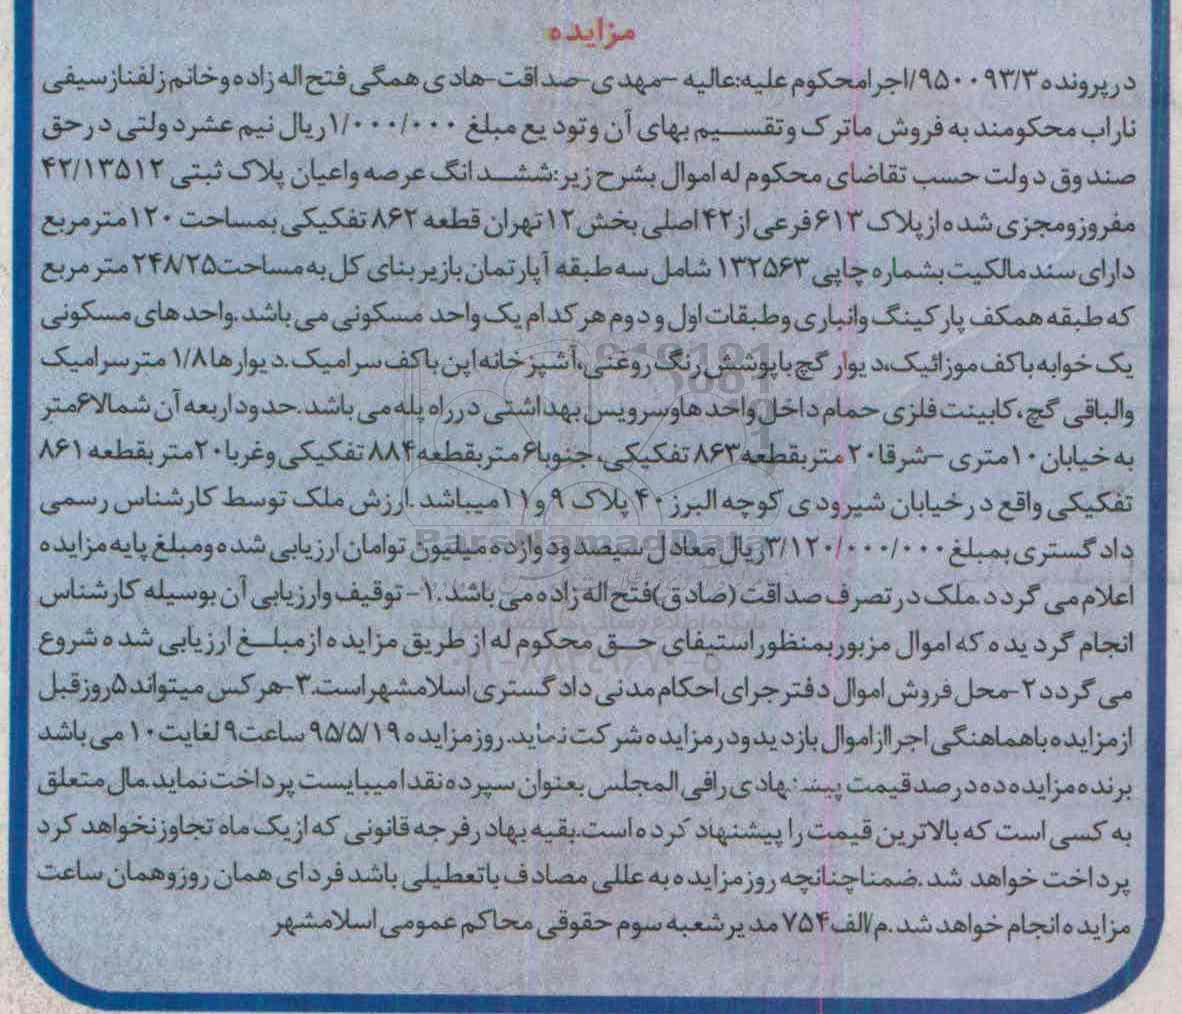 مزایده
درپرونده ۹۵۰۰۹۳/۳/اجرامحکوم علیه:عالیه -مهدی-صداقت-هادی همگی فتح اله زاده وخانم زلفناز سیفی
ناراب محکومند به فروش ماترک وتقسیم بهای آن وتودیع مبلغ ۱/۰۰۰/۰۰۰ریال نیم عشردولتی درحق
صندوق دولت حسب تقاضای محکوم له اموال بشرح زیر:ششدانگ عرصه واعیان پلاک ثبتی ۴۲/۱۳۵۱۲
مفروزومجزی شده ازپلاک ۶۱۳فرعی از۴۲اصلی بخش۱۲تهران قطعه ۸۶۲ تفکیکی بمساحت ۱۲۰مترمربع
دارای سندمالکیت بشماره چاپی ۱۳۲۵۶۳ شامل سه طبقه آپارتمان بازیربنای کل به مساحت۲۴۸/۲۵ متر مربع
که طبقه همکف پارکینگ وانباری وطبقات اول و دوم هرکدام یک واحد مسکونی می باشد.واحدهای مسکونی
یک خوابه باکف موزائیک،دیوار گچ باپوشش رنگ روغنی،آشپزخانه اپن باکف سرامیک.دیوارها ۱/۸ مترسرامیک
والباقی گچ،کابینت فلزی حمام داخل واحدهاوسرویس بهداشتی درراه پله می باشد.حدوداربعه آن شمالا۶متر
به خیابان۱۰متری -شرقا۲۰متربقطعه۸۶۳ تفکیکی،جنوبا۶متربقطعه۸۸۴ تفکیکی وغربا۲۰متربقطعه ۸۶۱
تفکیکی واقع درخیابان شیرودی کوچه البرز۴۰ پلاک ۹ و۱۱میباشد .ارزش ملک توسط کارشناس رسمی
دادگستری بمبلغ ۳/۱۲۰/۰۰۰/۰۰۰ریال معادل سیصدودوازده میلیون توامان ارزیابی شده ومبلغ پایه مزایده
اعلام می گردد.ملک درتصرف صداقت (صادق)فتح اله زاده می باشد.۱- توقیف وارزیابی آن بوسیله کارشناس
انجام گردیده که اموال مزبوربمنظوراستیفای حق محکوم له از طریق مزایده ازمبلغ ارزیابی شده شروع
می گردد۲-محل فروش اموال دفتراجرای احکام مدنی دادگستری اسلامشهراست.۳-هرکس میتواند۵روزقبل
ازمزایده باهماهنگی اجراازاموال بازدیدودرمزایده شرکت نماید.روزمزایده ۹۵/۵/۱۹ ساعت۹لغایت۱۰می باشد
برنده مزایده ده درصدقیمت پیشنهادی رافی المجلس بعنوان سپرده نقدامیبایست پرداخت نماید.مال متعلق
به کسی است که بالاترین قیمت را پیشنهاد کرده است.بقیه بهادرفرجه قانونی که ازیک ماه تجاوزنخواهد کرد
پرداخت خواهد شد.ضمناچنانچه روزمزایده به عللی مصادف باتعطیلی باشد فردای همان روزوهمان ساعت
مزایده انجام خواهدشد.م/الف۷۵۴ مدیرشعبه سوم حقوقی محاکم عمومی اسلامشهر
ParsNamadData